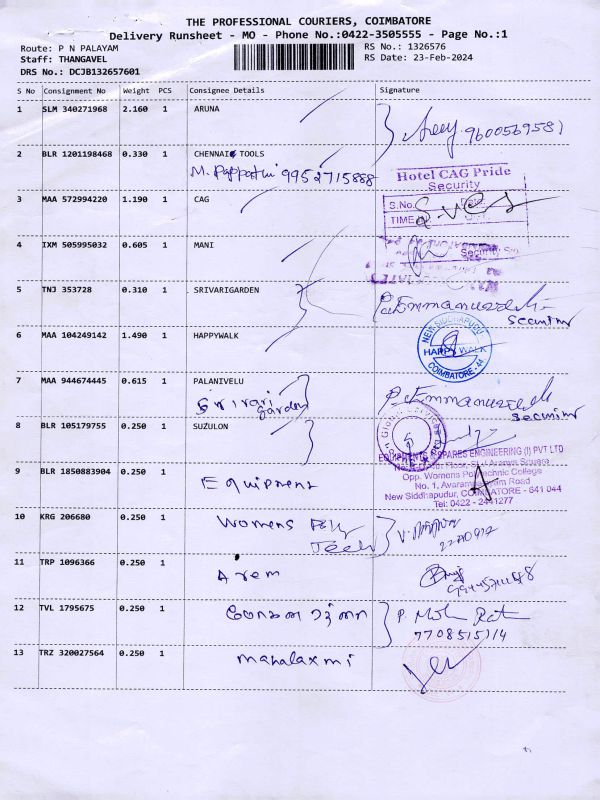 THE PROFESSIONAL COURIERS, COIMBATORE
Delivery Runsheet - MO - Phone No.:0422-3505555 - Page No.:1
Route: P N PALAYAM
RS No.: 1326576
Staff: THANGAVEL
RS Date: 23-Feb-2024
DRS No.: DCJB132657601
S No Consignment No Weight PCS Consignee Details Signature
1 SLM 340271968 2.160 1 ARUNA
9600569581
2 BLR 1201198468 0.330 1 CHENNAI TOOLS
M. Pappathi 9952715888
Hotel CAG Pride
Security
3 MAA 572994220 1.190 1 CAG
S.No.
TIME
4 IXM 505995032 0.605 1 MANI
Security
5 TNJ 353728 0.310 1 SRIVARIGARDEN
P. Emmanuel
security
6 MAA 104249142 1.490 1 HAPPYWALK
NEW SIDDHAPUDUR
HAPPY WALK
COIMBATORE - 44
7 MAA 944674445 0.615 1 PALANIVELU
Srivari
garden
security
8 BLR 105179755 0.250 1 SUZULON
EQUIPMENTS & SPARES ENGINEERING (I) PVT LTD
9 BLR 1850883904 0.250 1
Equipment
Opp. Womens Polytechnic College
No. 1, Avarampalayam Road
New Siddhapudur, COIMBATORE - 641 044
Tel: 0422 - 2441277
10 KRG 206680 0.250 1
Womens Poly
Tech
11 TRP 1096366 0.250 1
Arem
12 TVL 1795675 0.250 1
P. Mohan
7708515114
13 TRZ 320027564 0.250 1
mahalaxmi